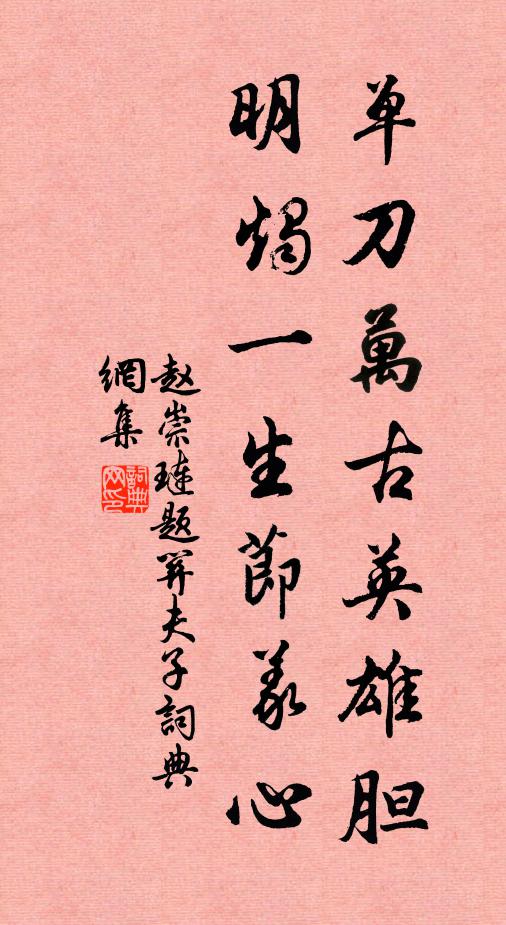 单刀萬古英雄胆
明燭一生節義心
赵崇璉题関夫子詞典
網集
詞典
网印